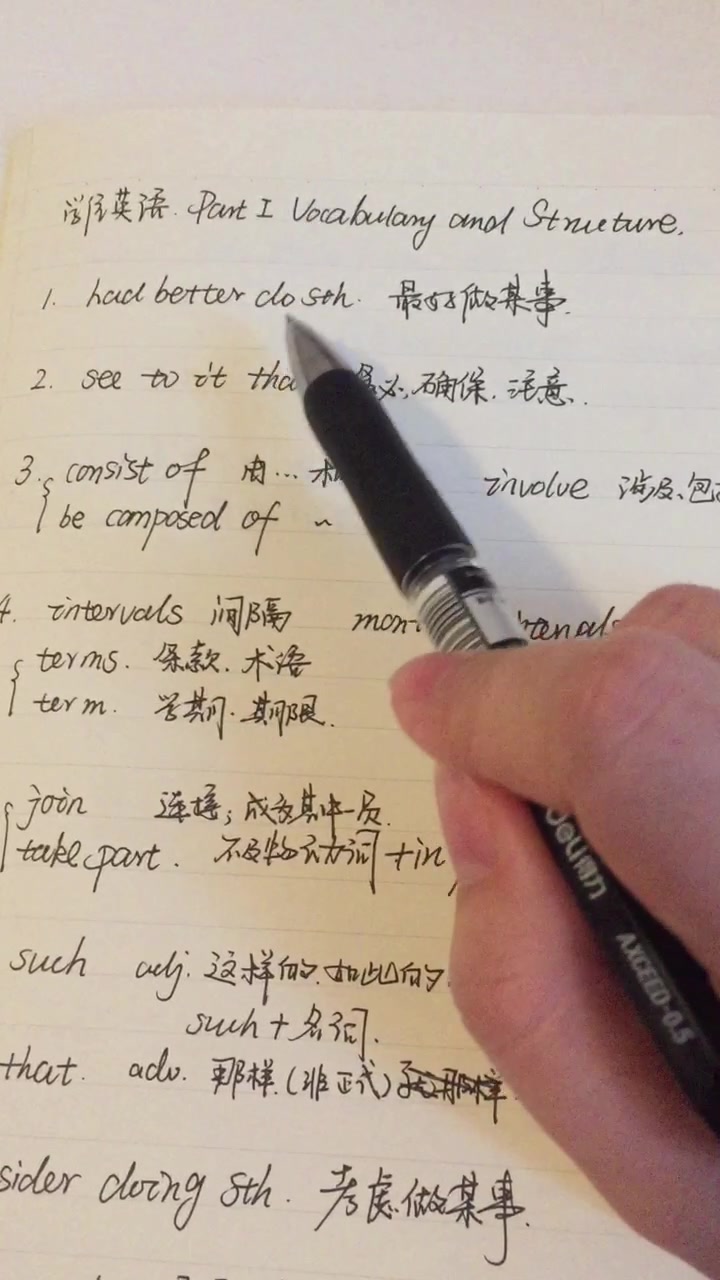 学位英语. Part I Vocabulary and Structure.
1. had better do sth. 最好做某事.
2. see to it 务必, 确保. 注意.
3. consist of 由... involve 涉及、包
be composed of ~
4. intervals 间隔
terms. 条款. 术语
term. 学期. 期限.
join 连接; 成为其中一员.
take part. 不及物动词 + in
such adj. 这样的. 如此的
such + 名词.
that. adv. 那样. (非正式)
sider doing sth. 考虑做某事.
deli 得力
AXCEED-0.5